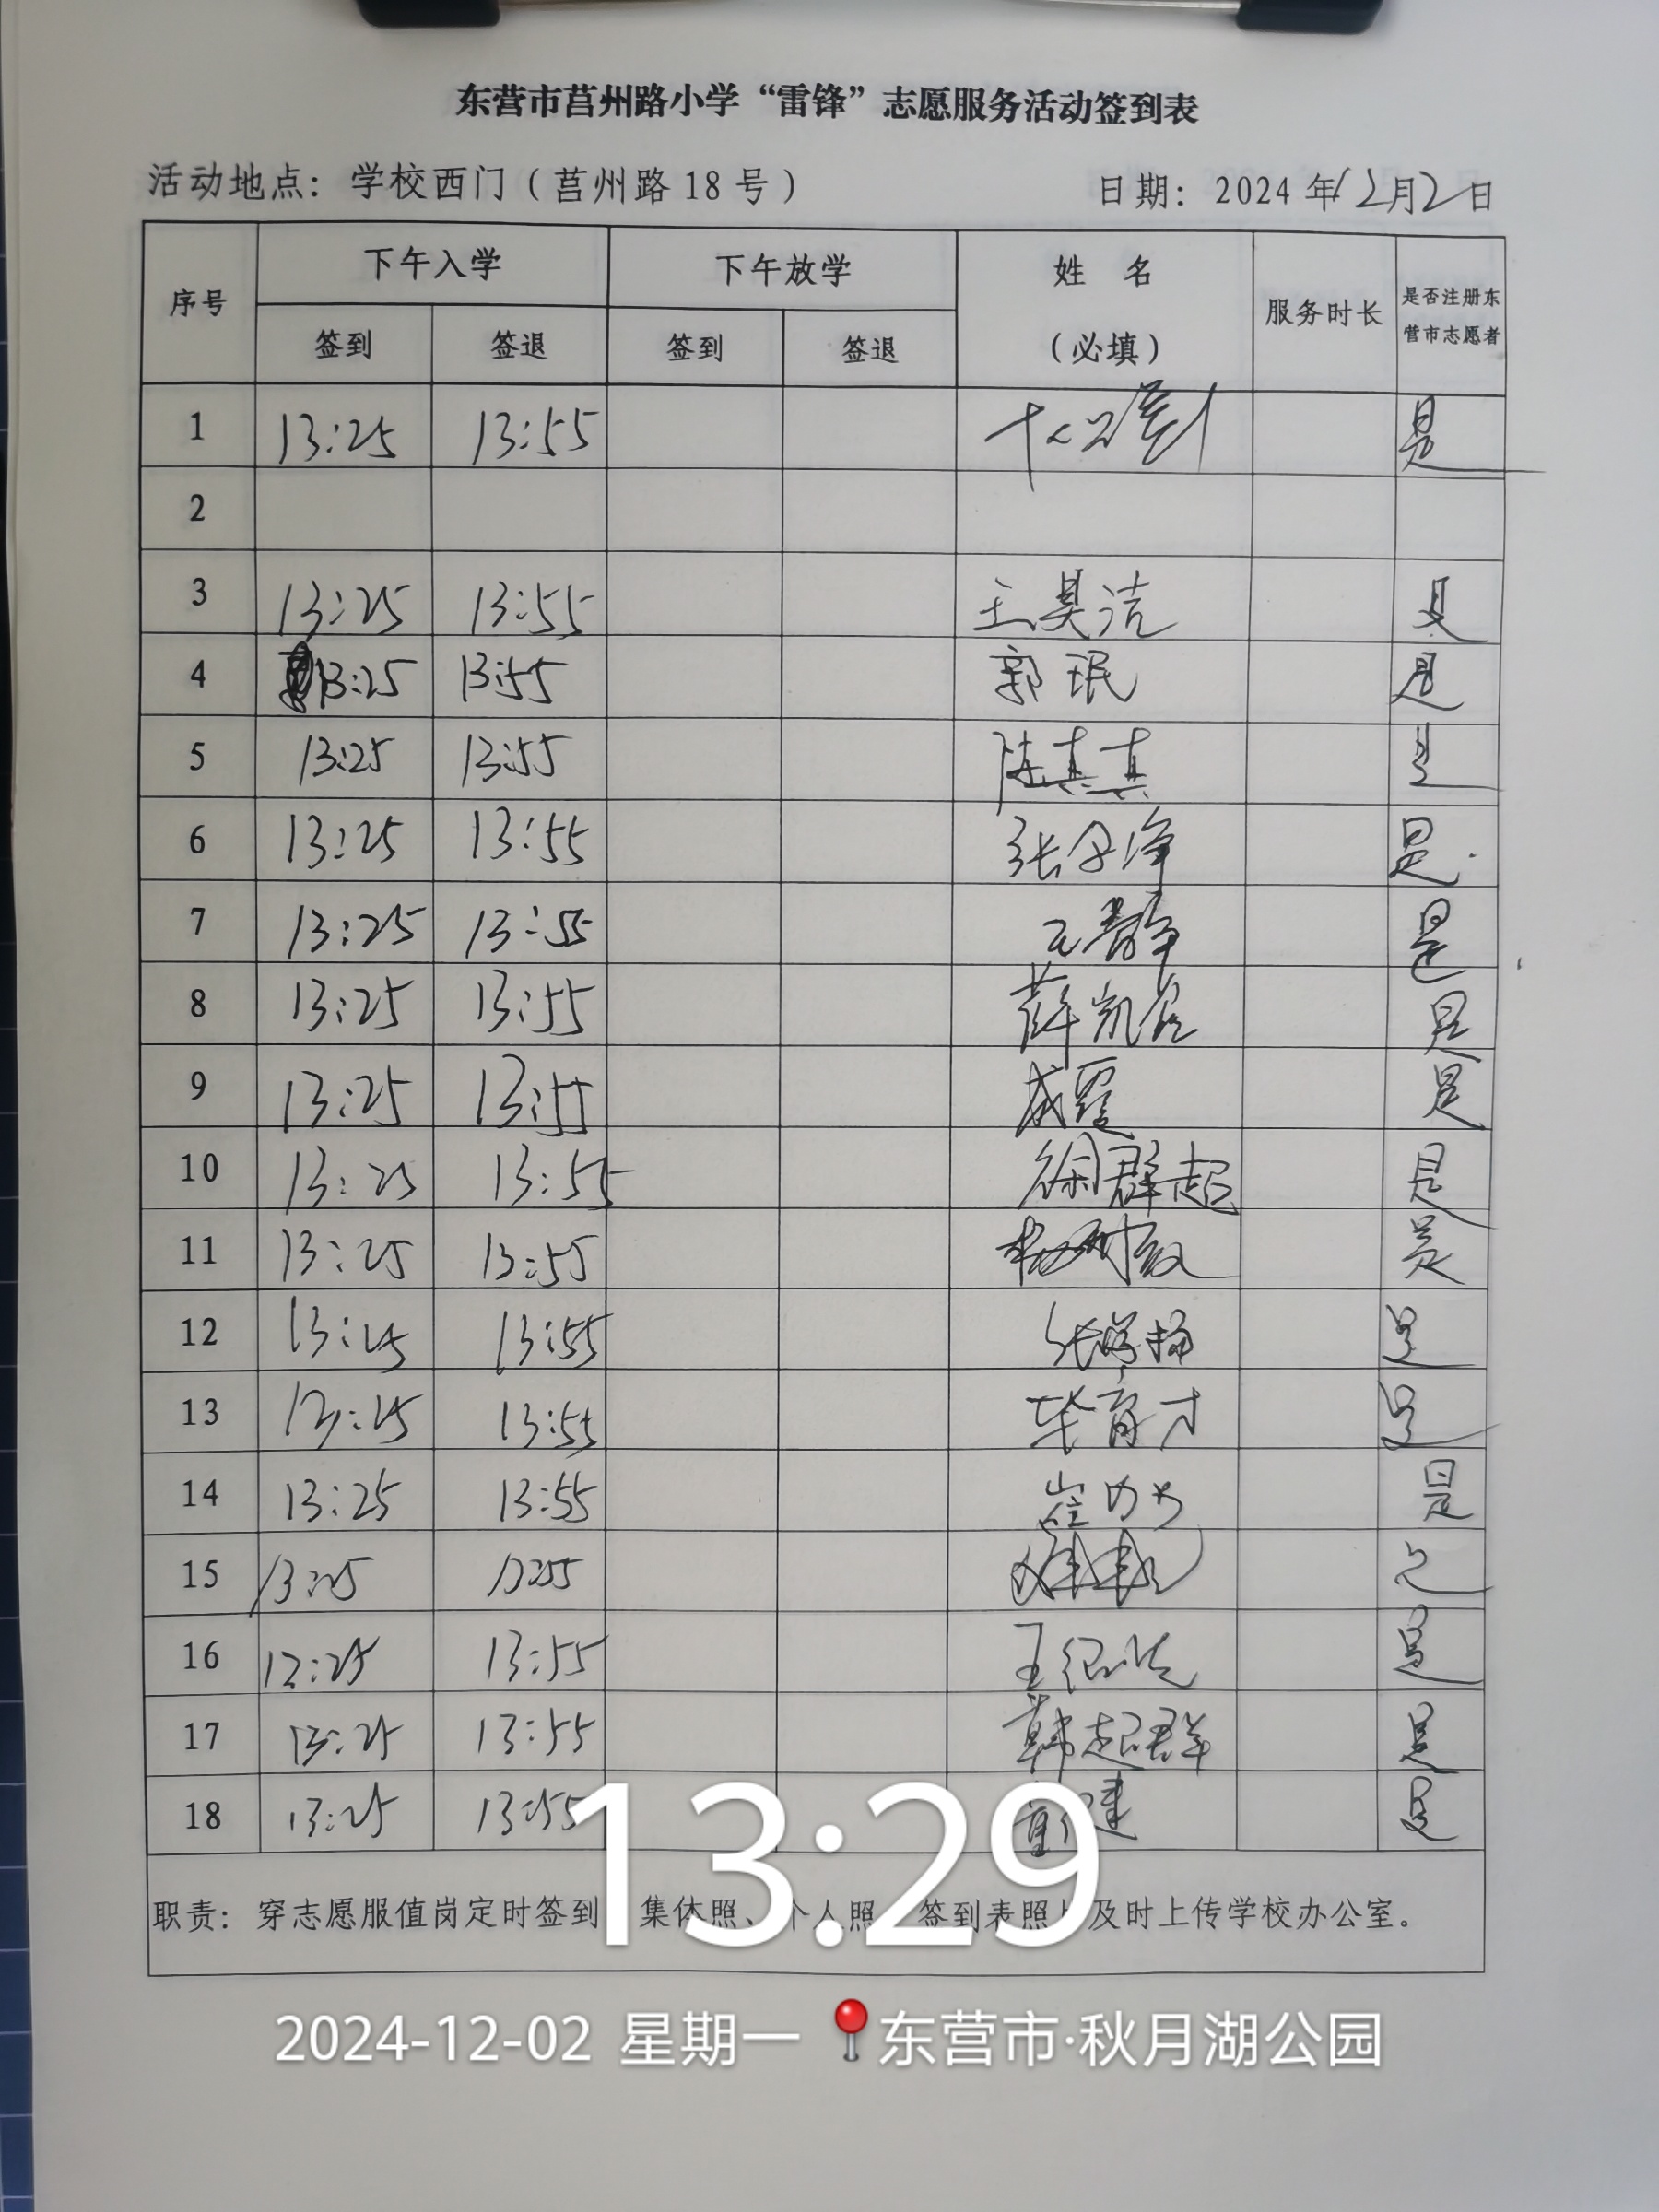 东营市莒州路小学“雷锋”志愿服务活动签到表
活动地点：学校西门（莒州路18号） 日期：2024年12月2日
序号 下午入学 下午放学 姓 名 （必填） 服务时长 是否注册东营市志愿者
签到 签退 签到 签退
1 13:25 13:55 是
2
3 13:25 13:55 王昊洁 是
4 13:25 13:55 郭珉 是
5 13:25 13:55 陈真真 是
6 13:25 13:55 张 是
7 13:25 13:55 王静 是
8 13:25 13:55 薛凯 是
9 13:25 13:55 成霆 是
10 13:25 13:55 徐群超 是
11 13:25 13:55 杨 是
12 13:25 13:55 张 扬 是
13 13:25 13:55 毕育才 是
14 13:25 13:55 崔 是
15 13:25 13:55 是
16 13:25 13:55 王 是
17 13:25 13:55 韩起群 是
18 13:25 13:55 健 是
职责：穿志愿服值岗定时签到 集体照、个人照 签到表照 及时上传学校办公室。
13:29
2024-12-02 星期一 东营市·秋月湖公园